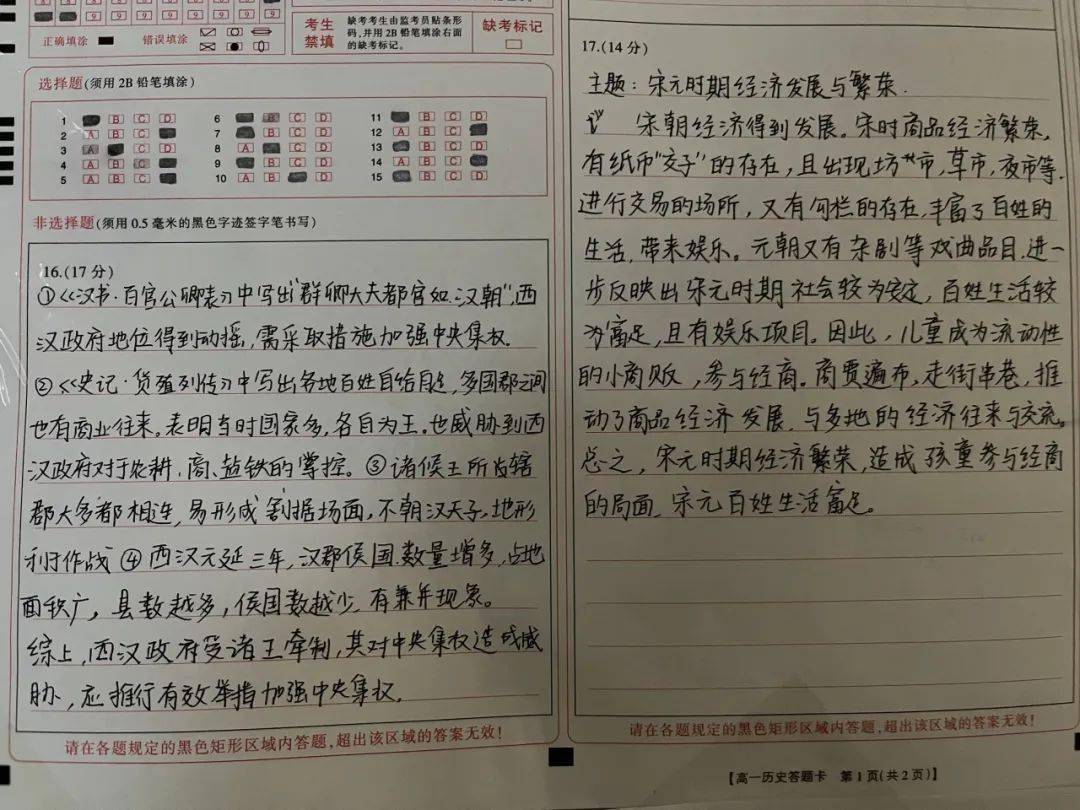 正确填涂
错误填涂
考生
禁填
缺考考生由监考员贴条形
码,并用2B铅笔填涂右面
的缺考标记。
缺考标记
选择题(须用2B铅笔填涂)
1 B C D
6 C D
11 B C D
2 A B C
7 B C D
12 A B C
3 A C D
8 A C D
13 B C D
4 A B C
9 B C D
14 A B C
5 A B C
10 A B D
15 B C D
非选择题(须用0.5毫米的黑色字迹签字笔书写)
16.(17分)
①《汉书·百官公卿表》中写出"群卿大夫都官如汉朝",西
汉政府地位得到动摇,需采取措施加强中央集权.
②《史记·货殖列传》中写出各地百姓自给自足,多国郡之间
也有商业往来。表明当时国家多,各自为王.也威胁到西
汉政府对于农耕.商、盐铁的掌控。③诸侯王所占辖
郡大多都相连,易形成割据场面,不朝汉天子.地形
利于作战④西汉元延三年,汉郡侯国.数量增多,占地
面积广,县数越多,侯国数越少.有兼并现象。
综上,西汉政府受诸王牵制,其对中央集权造成威
胁,应推行有效举措加强中央集权.
请在各题规定的黑色矩形区域内答题,超出该区域的答案无效!
17.(14分)
主题:宋元时期经济发展与繁荣.
宋朝经济得到发展.宋时商品经济繁荣,
有纸币"交子"的存在,且出现坊市,草市,夜市等.
进行交易的场所,又有勾栏的存在,丰富了百姓的
生活,带来娱乐。元朝又有杂剧等戏曲品目.进一
步反映出宋元时期社会较为安定,百姓生活较
为富足,且有娱乐项目.因此,儿童成为流动性
的小商贩,参与经商.商贾遍布,走街串巷,推
动了商品经济发展,与多地的经济往来与交流。
总之,宋元时期经济繁荣,造成孩童参与经商
的局面,宋元百姓生活富足。
请在各题规定的黑色矩形区域内答题,超出该区域的答案无效!
【高一历史答题卡 第1页(共2页)】